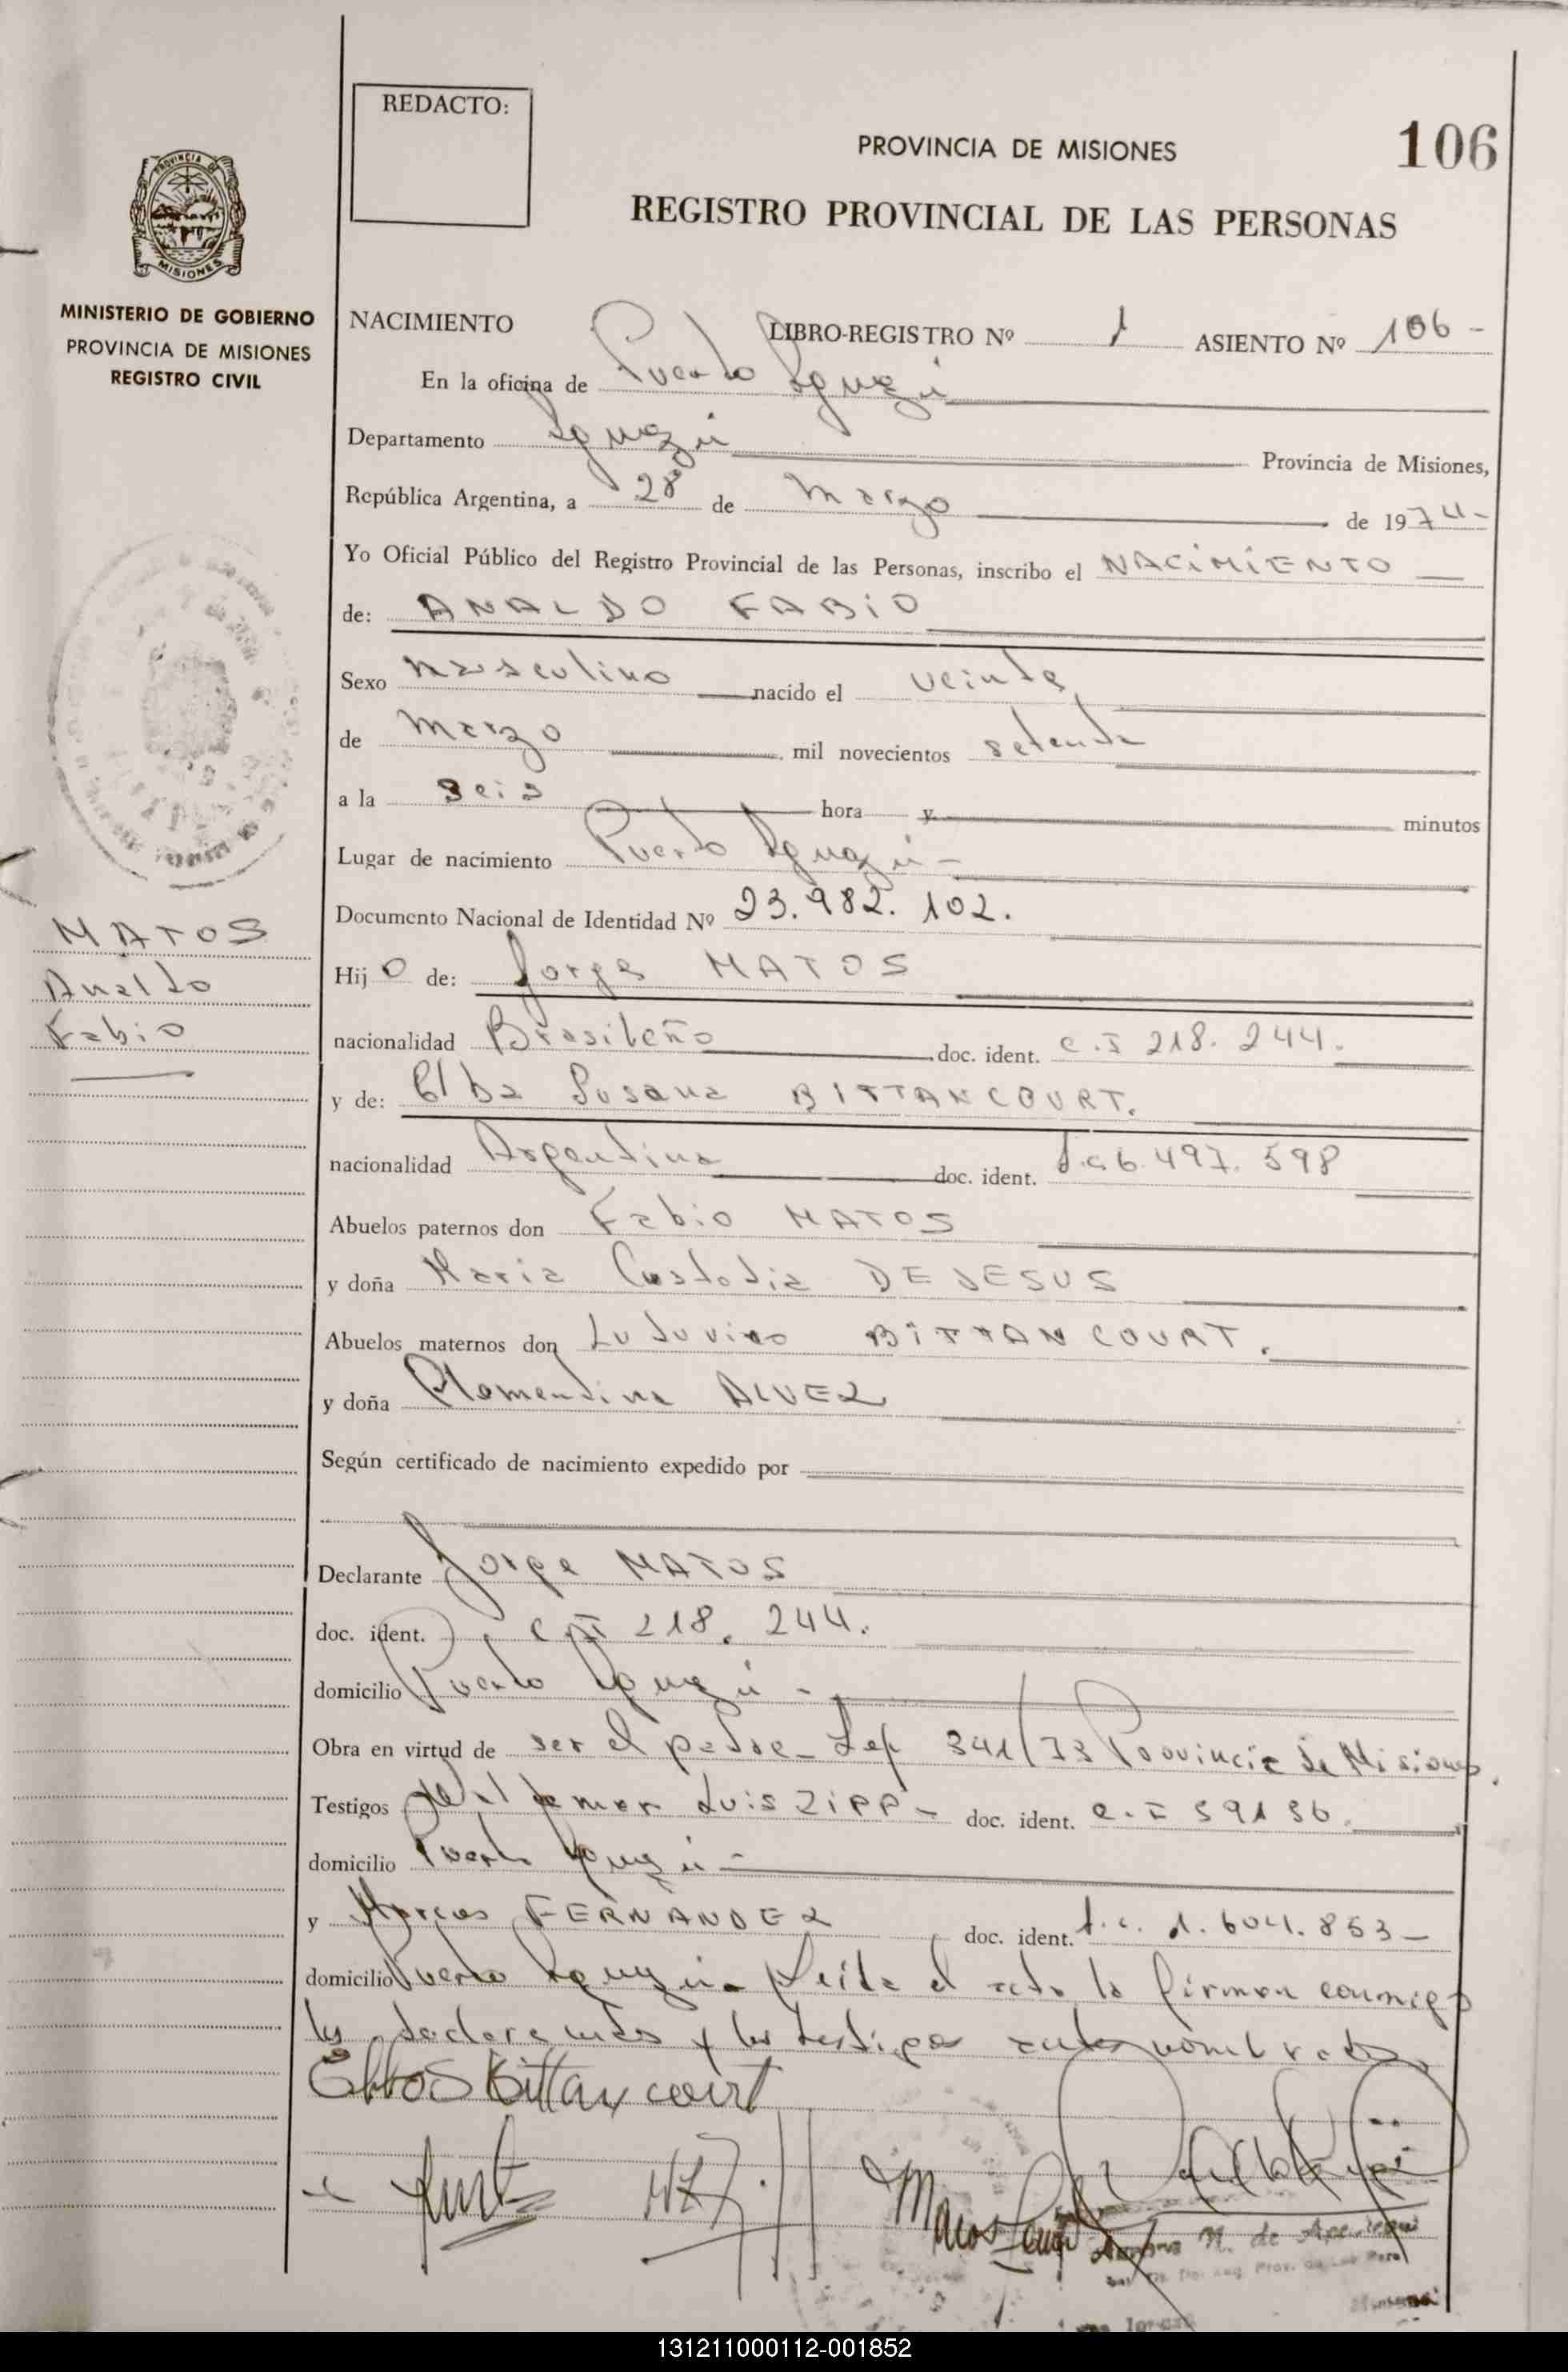 REDACTO:
PROVINCIA DE MISIONES
106
REGISTRO PROVINCIAL DE LAS PERSONAS
PROVINCIA DE
MISIONES
MINISTERIO DE GOBIERNO
PROVINCIA DE MISIONES
REGISTRO CIVIL
NACIMIENTO LIBRO-REGISTRO Nº 1 ASIENTO Nº 106 -
En la oficina de Puerto Iguazú
Departamento Iguazú Provincia de Misiones,
República Argentina, a 28 de marzo de 1974-
Yo Oficial Público del Registro Provincial de las Personas, inscribo el NACIMIENTO
de: ANALDO FABIO
Sexo masculino nacido el veinte
de marzo mil novecientos setenta
a la seis hora y minutos
Lugar de nacimiento Puerto Iguazú -
Documento Nacional de Identidad Nº 23.982.102.
MATOS
Analdo
Fabio
Hijo de: Jorge MATOS
nacionalidad Brasileño doc. ident. C.I 218.244.
y de: Elba Susana BITTANCOURT.
nacionalidad Argentina doc. ident. L.c 6.497.598
Abuelos paternos don Fabio MATOS
y doña Maria Custodia DE JESUS
Abuelos maternos don Luduvino BITTANCOURT.
y doña Clementina ALVEZ
Según certificado de nacimiento expedido por
Declarante Jorge MATOS
doc. ident. C.I 218.244.
domicilio Puerto Iguazú -
Obra en virtud de ser el padre - Ley 341/73 Provincia de Misiones.
Testigos Luis ZIPP - doc. ident. C.I 59136.
domicilio Puerto Iguazú -
y Marcos FERNANDEZ doc. ident. L.c. 1.604.853 -
domicilio Puerto Iguazú - Leída el acta la firman conmigo
los declarantes y los testigos antes nombrados
Elba S Bittancourt
Marcos
N. de
131211000112-001852